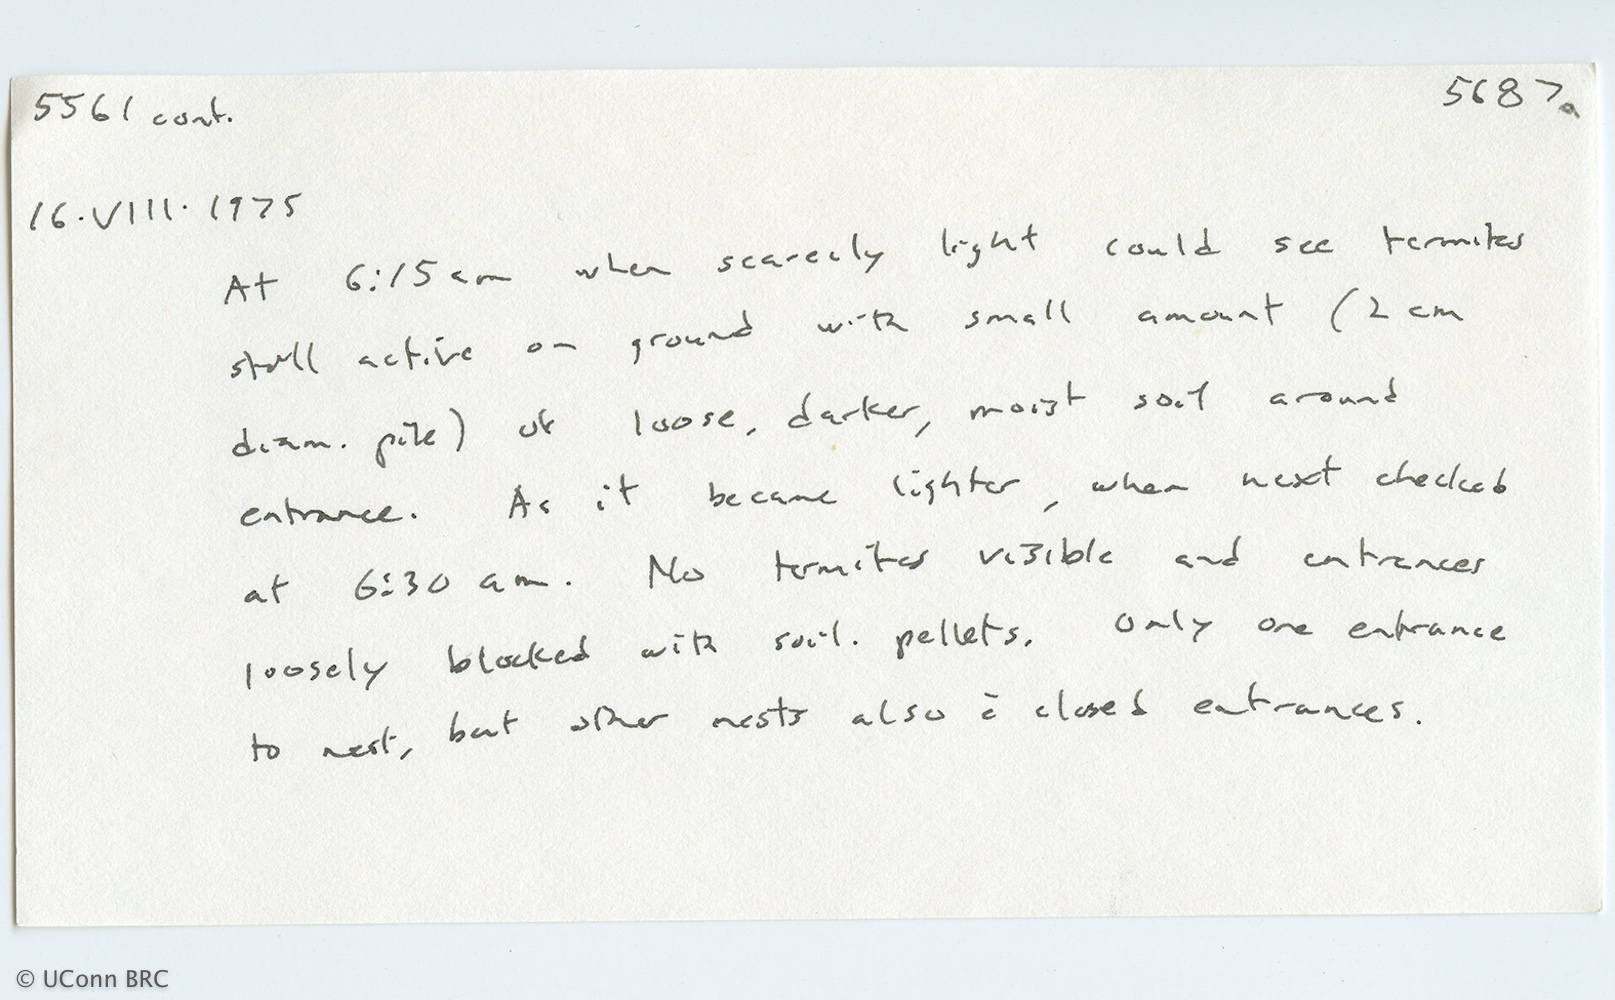 5561 cont.
5687a
16.VIII.1975
At 6:15 am when scarcely light could see termites
still active on ground with small amount (2 cm
diam. pile) of loose, darker, moist soil around
entrance. As it became lighter, when next checked
at 6:30 am. No termites visible and entrances
loosely blocked with soil. pellets. Only one entrance
to nest, but other nests also c̄ closed entrances.
© UConn BRC